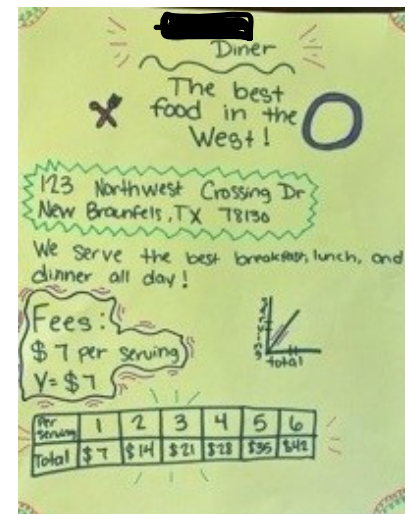 Diner
The best
food in the
West!
123 Northwest Crossing Dr
New Braunfels, TX 78130
We serve the best breakfast, lunch, and
dinner all day!
Fees:
$7 per serving
Y=$7
total
Per Serving 1 2 3 4 5 6
Total $7 $14 $21 $28 $35 $42